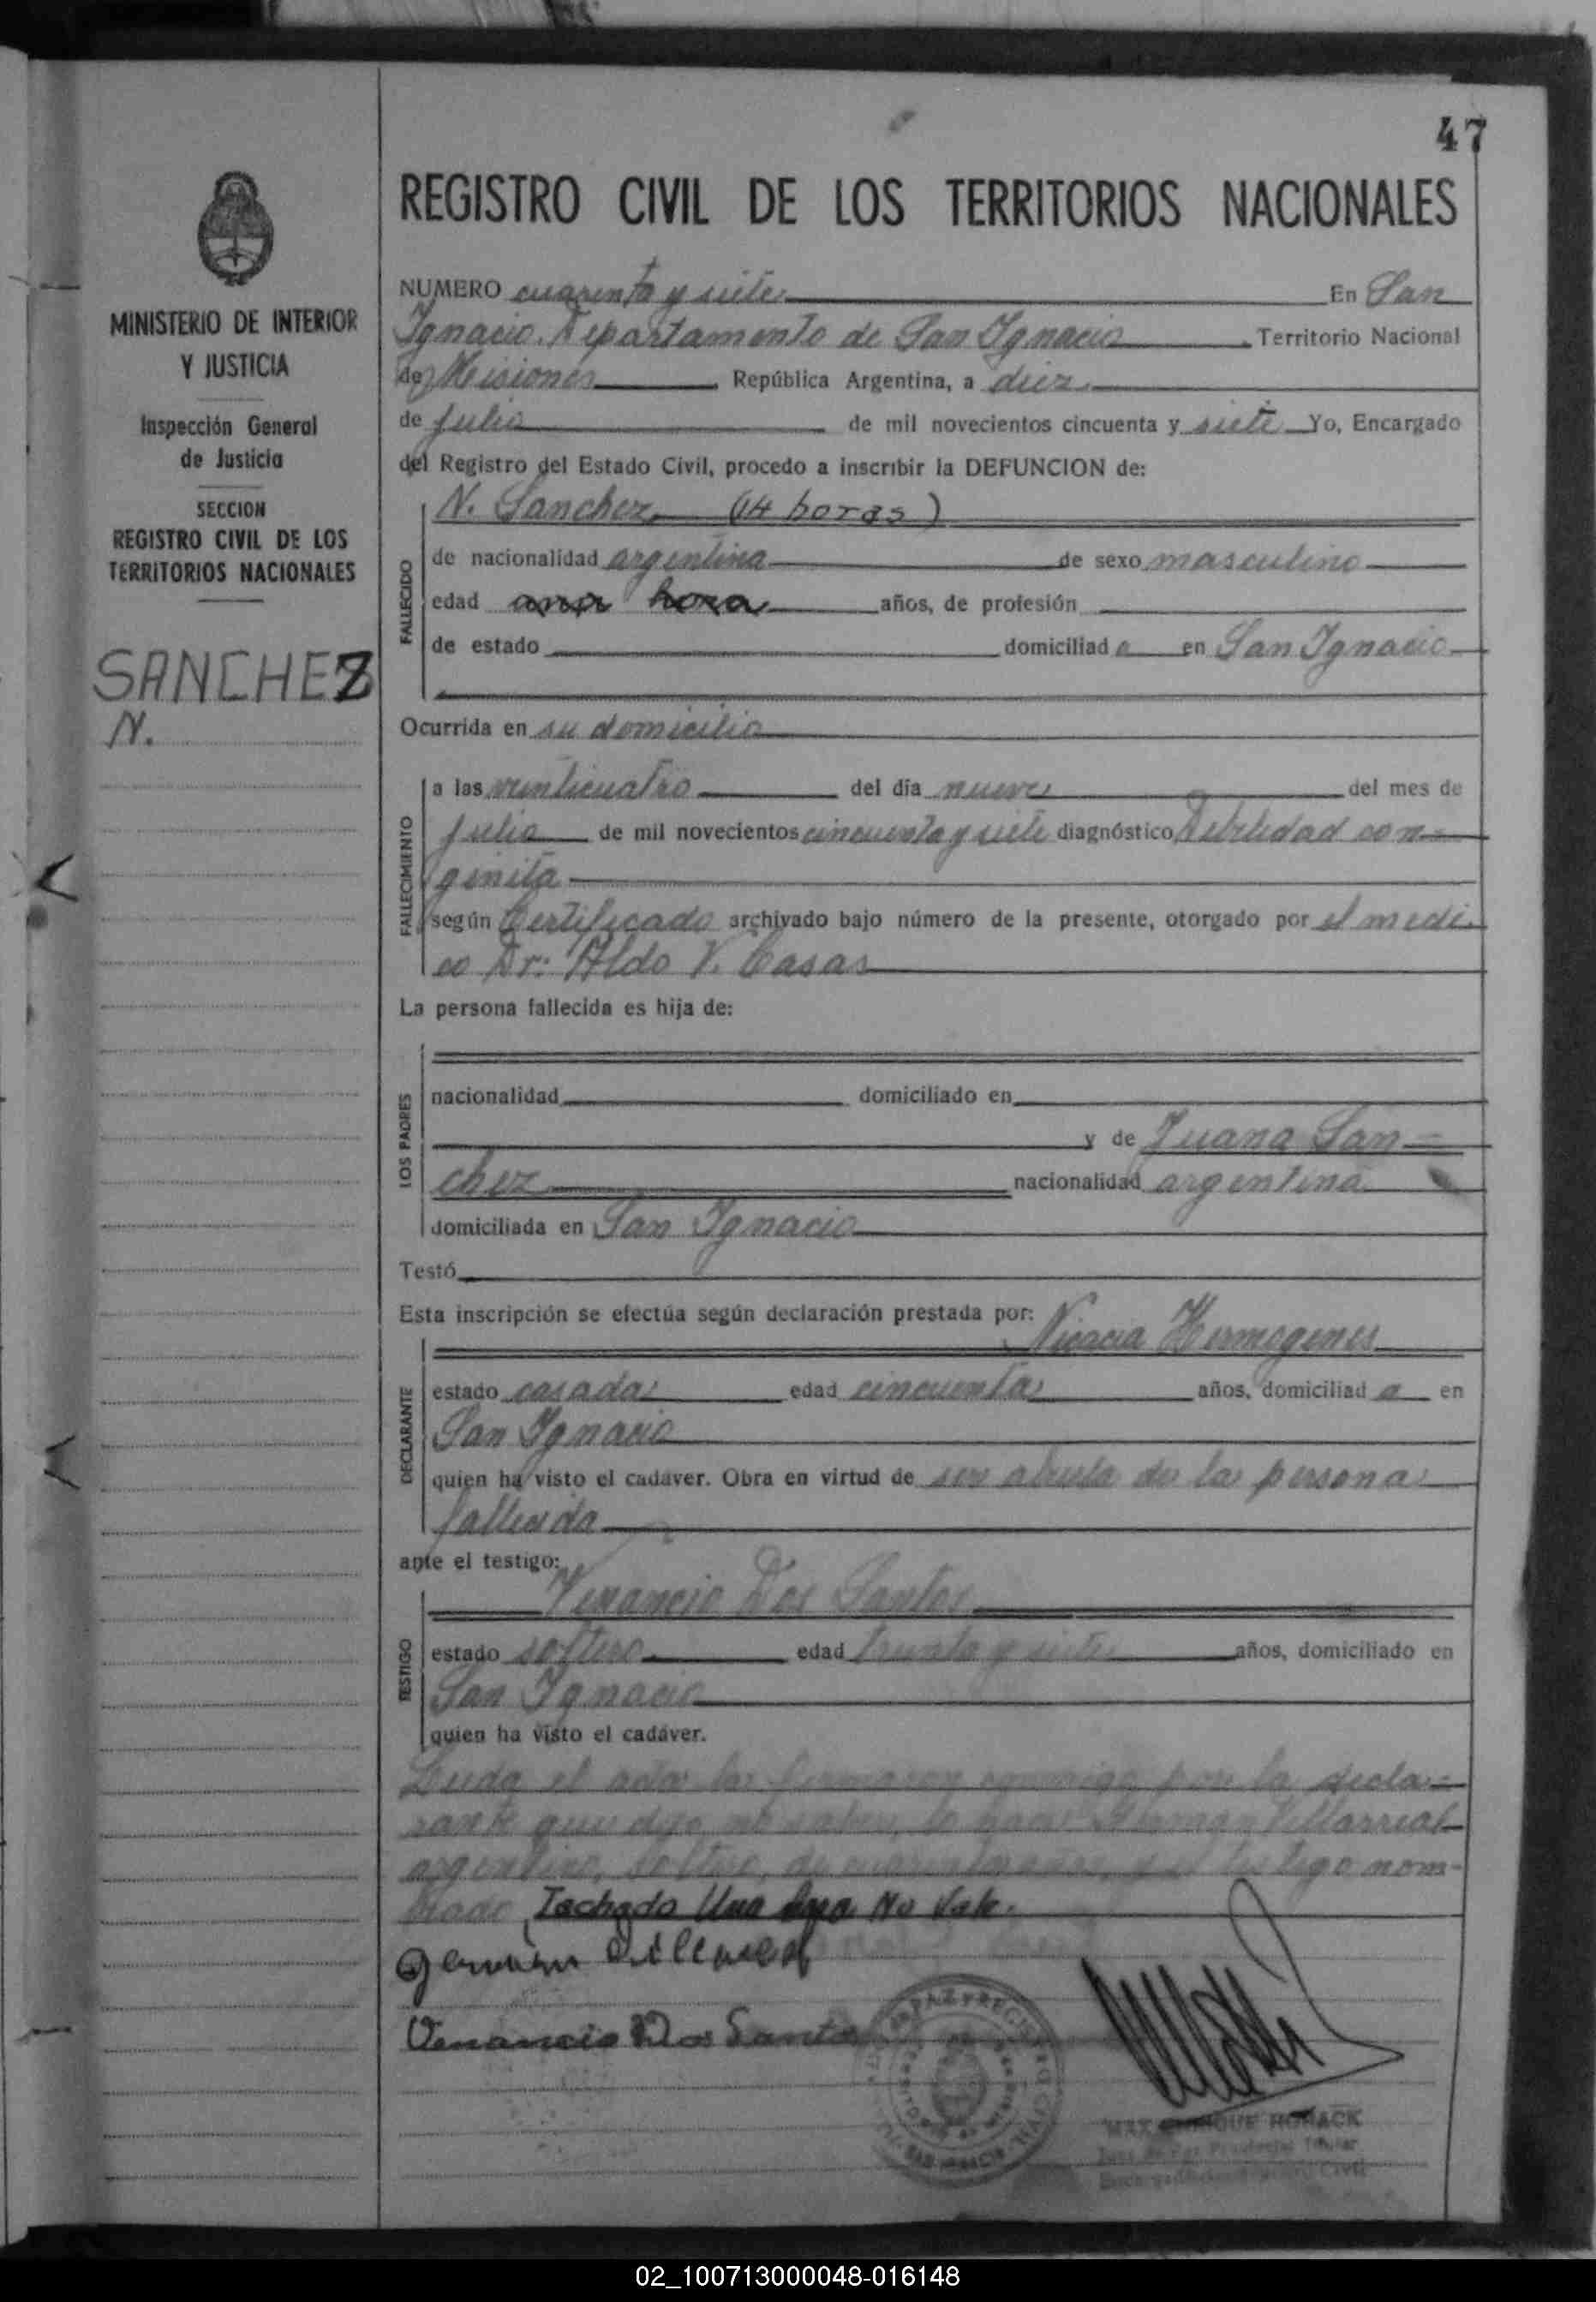 47
REGISTRO CIVIL DE LOS TERRITORIOS NACIONALES
MINISTERIO DE INTERIOR
Y JUSTICIA
Inspección General
de Justicia
SECCION
REGISTRO CIVIL DE LOS
TERRITORIOS NACIONALES
SANCHEZ
N.
NUMERO cuarenta y siete En San
Ignacio. Departamento de San Ignacio Territorio Nacional
de Misiones República Argentina, a diez
de julio de mil novecientos cincuenta y siete Yo, Encargado
del Registro del Estado Civil, procedo a inscribir la DEFUNCION de:
N. Sanchez (14 horas)
FALLECIDO
de nacionalidad argentina de sexo masculino
edad una hora años, de profesión
de estado domiciliad o en San Ignacio
Ocurrida en su domicilio
FALLECIMIENTO
a las veinticuatro del día nueve del mes de
julio de mil novecientos cincuenta y siete diagnóstico Debilidad con-
genita
según Certificado archivado bajo número de la presente, otorgado por el medi-
co Dr: Aldo V. Casas
La persona fallecida es hija de:
LOS PADRES
nacionalidad domiciliado en
y de Juana San-
chez nacionalidad argentina
domiciliada en San Ignacio
Testó
Esta inscripción se efectúa según declaración prestada por:
Hermogenes
DECLARANTE
estado casada edad cincuenta años, domiciliad a en
San Ignacio
quien ha visto el cadáver. Obra en virtud de ser abuela de la persona
fallecida
ante el testigo:
Venancio Dos Santos
TESTIGO
estado soltero edad treinta y siete años, domiciliado en
San Ignacio
quien ha visto el cadáver.
Leida el acta la firmaron conmigo por la decla-
rante que dijo no saber, lo hace German Villarreal
argentino, soltero, de años, y el testigo nom-
brado Tachado Una hora No Vale.
Venancio Dos Santos
PAZ Y REGISTRO CIVIL
SAN IGNACIO
MAX ENRIQUE
Juez de Paz Provincial Titular
02_100713000048-016148